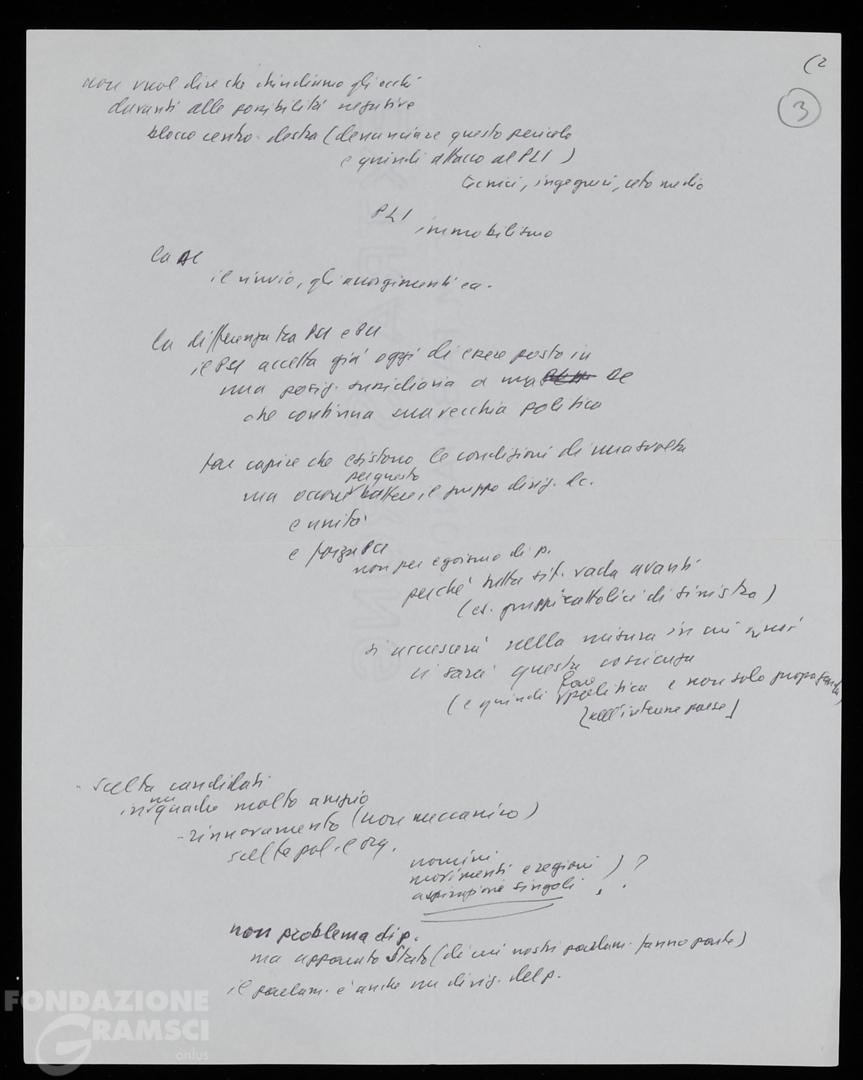 (2
3
non vuol dire che chiudiamo gli occhi
davanti alle possibilità negative
blocco centro-destra (denunciare questo pericolo
e quindi attacco al PLI)
tecnici, ingegneri, ceto medio
PLI
immobilismo
la DC
il rinvio, gli accorgimenti ec.
la differenza tra PCI e PSI
il PSI accetta già oggi di essere posto in
una posiz. sussidiaria a una DC
che continua sua vecchia politica
far capire che esistono le condizioni di una svolta
ma occorre per questo battere il gruppo dirig. dc.
e unità
e forza PCI
non per egoismo di p.
perché tutta sit. vada avanti
(cf. gruppi cattolici di sinistra)
si accrescerà nella misura in cui
ci sarà questa coscienza
(e quindi fare politica e non solo propaganda)
[nell'intenne paese]
- scelta candidati
in un quadro molto ampio
- rinnovamento (non meccanico)
scelte pol. e org.
uomini
movimenti e regioni ) ?
aspirazione singoli
non problema di p.
ma apparato Stato (di cui nostri parlam. fanno parte)
il parlam. è anche un dirig. del p.
FONDAZIONE
GRAMSCI
onlus